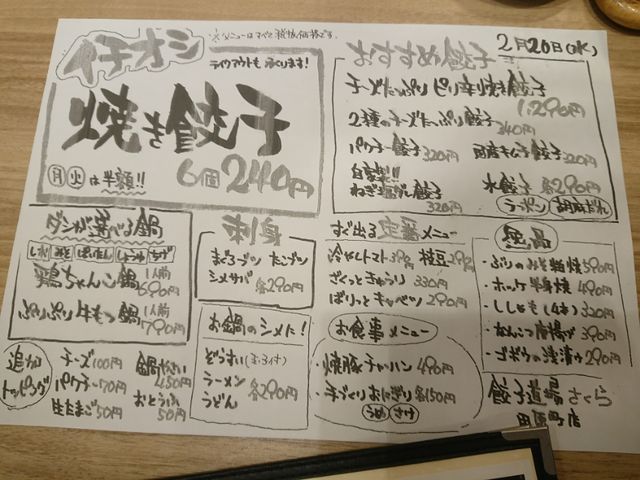 ※メニューはすべて税抜価格です。
2月20日(水)
イチオシ
テイクアウトも承ります!
焼き餃子
月 火 は半額!!
6個 240円
おすすめ餃子
チーズたっぷりピリ辛焼き餃子
1,290円
2種のチーズたっぷり餃子
340円
パクチー餃子 320円
国産キムチ餃子 320円
自家製!!
ねぎ塩だれ餃子
320円
水餃子 各290円
ラーパン 胡麻だれ
ダシが選べる鍋
しお みそ しょうゆ チゲ
鶏ちゃんこ鍋 1人前 690円
ぷりぷり牛もつ鍋 1人前 790円
追加トッピング
チーズ 100円
パクチー 70円
生たまご 50円
鍋やさい
450円
おとうふ
50円
刺身
まぐろブツ たこブツ
シメサバ 各290円
お鍋のシメト!
ぞうすい(玉子付)
ラーメン
うどん
各290円
すぐ出る定番メニュー
冷やしトマト 390円 枝豆 290円
ざくっときゅうり 330円
ぱりっとキャベツ 290円
お食事メニュー
焼豚チャーハン 490円
手づくりおにぎり 各150円
うめ さけ
逸品
・ぶりのみそ柚焼 590円
・ホッケ半身焼 490円
・ししゃも(4本) 320円
・なんこつ唐揚げ 390円
・ゴボウの浅漬け 290円
餃子道場さくら
田原町店